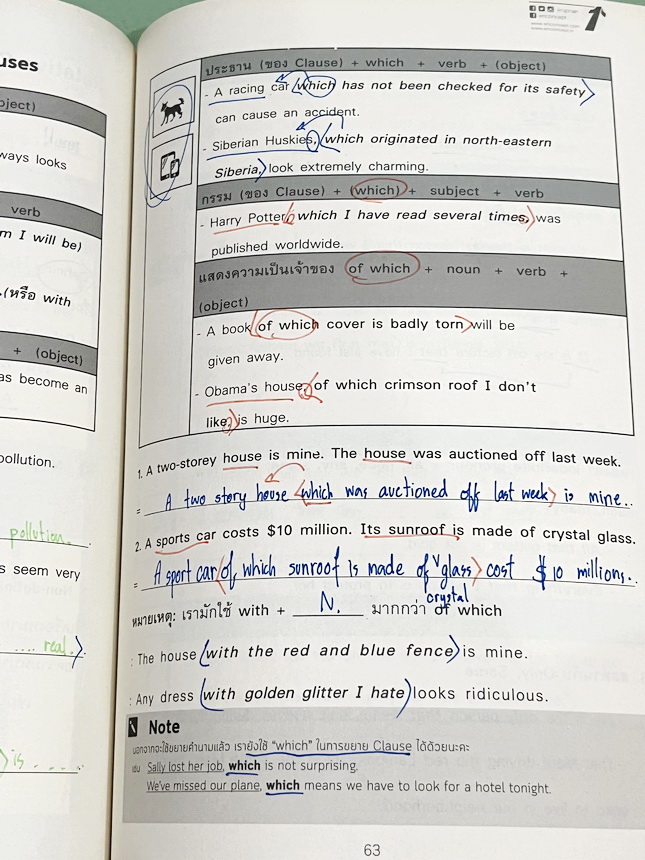 uses
bject)
ways looks
verb
m I will be)
.(หรือ with
+ (object)
as become an
pollution.
pollution.
s seem very
real.
is ....
1
ประธาน (ของ Clause) + which + verb + (object)
- A racing car which has not been checked for its safety
can cause an accident.
- Siberian Huskies, which originated in north-eastern
Siberia, look extremely charming.
กรรม (ของ Clause) + (which) + subject + verb
- Harry Potter, which I have read several times, was
published worldwide.
แสดงความเป็นเจ้าของ of which + noun + verb +
(object)
- A book of which cover is badly torn will be
given away.
- Obama's house, of which crimson roof I don't
like, is huge.
1. A two-storey house is mine. The house was auctioned off last week.
= A two story house <which was auctioned off last week> is mine..
2. A sports car costs $10 million. Its sunroof is made of crystal glass.
= A sport car <of which sunroof is made of glass> cost $ 10 millions..
crystal
หมายเหตุ: เรามักใช้ with + N. มากกว่า of which
: The house (with the red and blue fence) is mine.
: Any dress (with golden glitter I hate) looks ridiculous.
Note
นอกจากจะใช้ขยายคำนามแล้ว เรายังใช้ "which" ในการขยาย Clause ได้ด้วยนะคะ
เช่น Sally lost her job, which is not surprising.
We've missed our plane, which means we have to look for a hotel tonight.
63